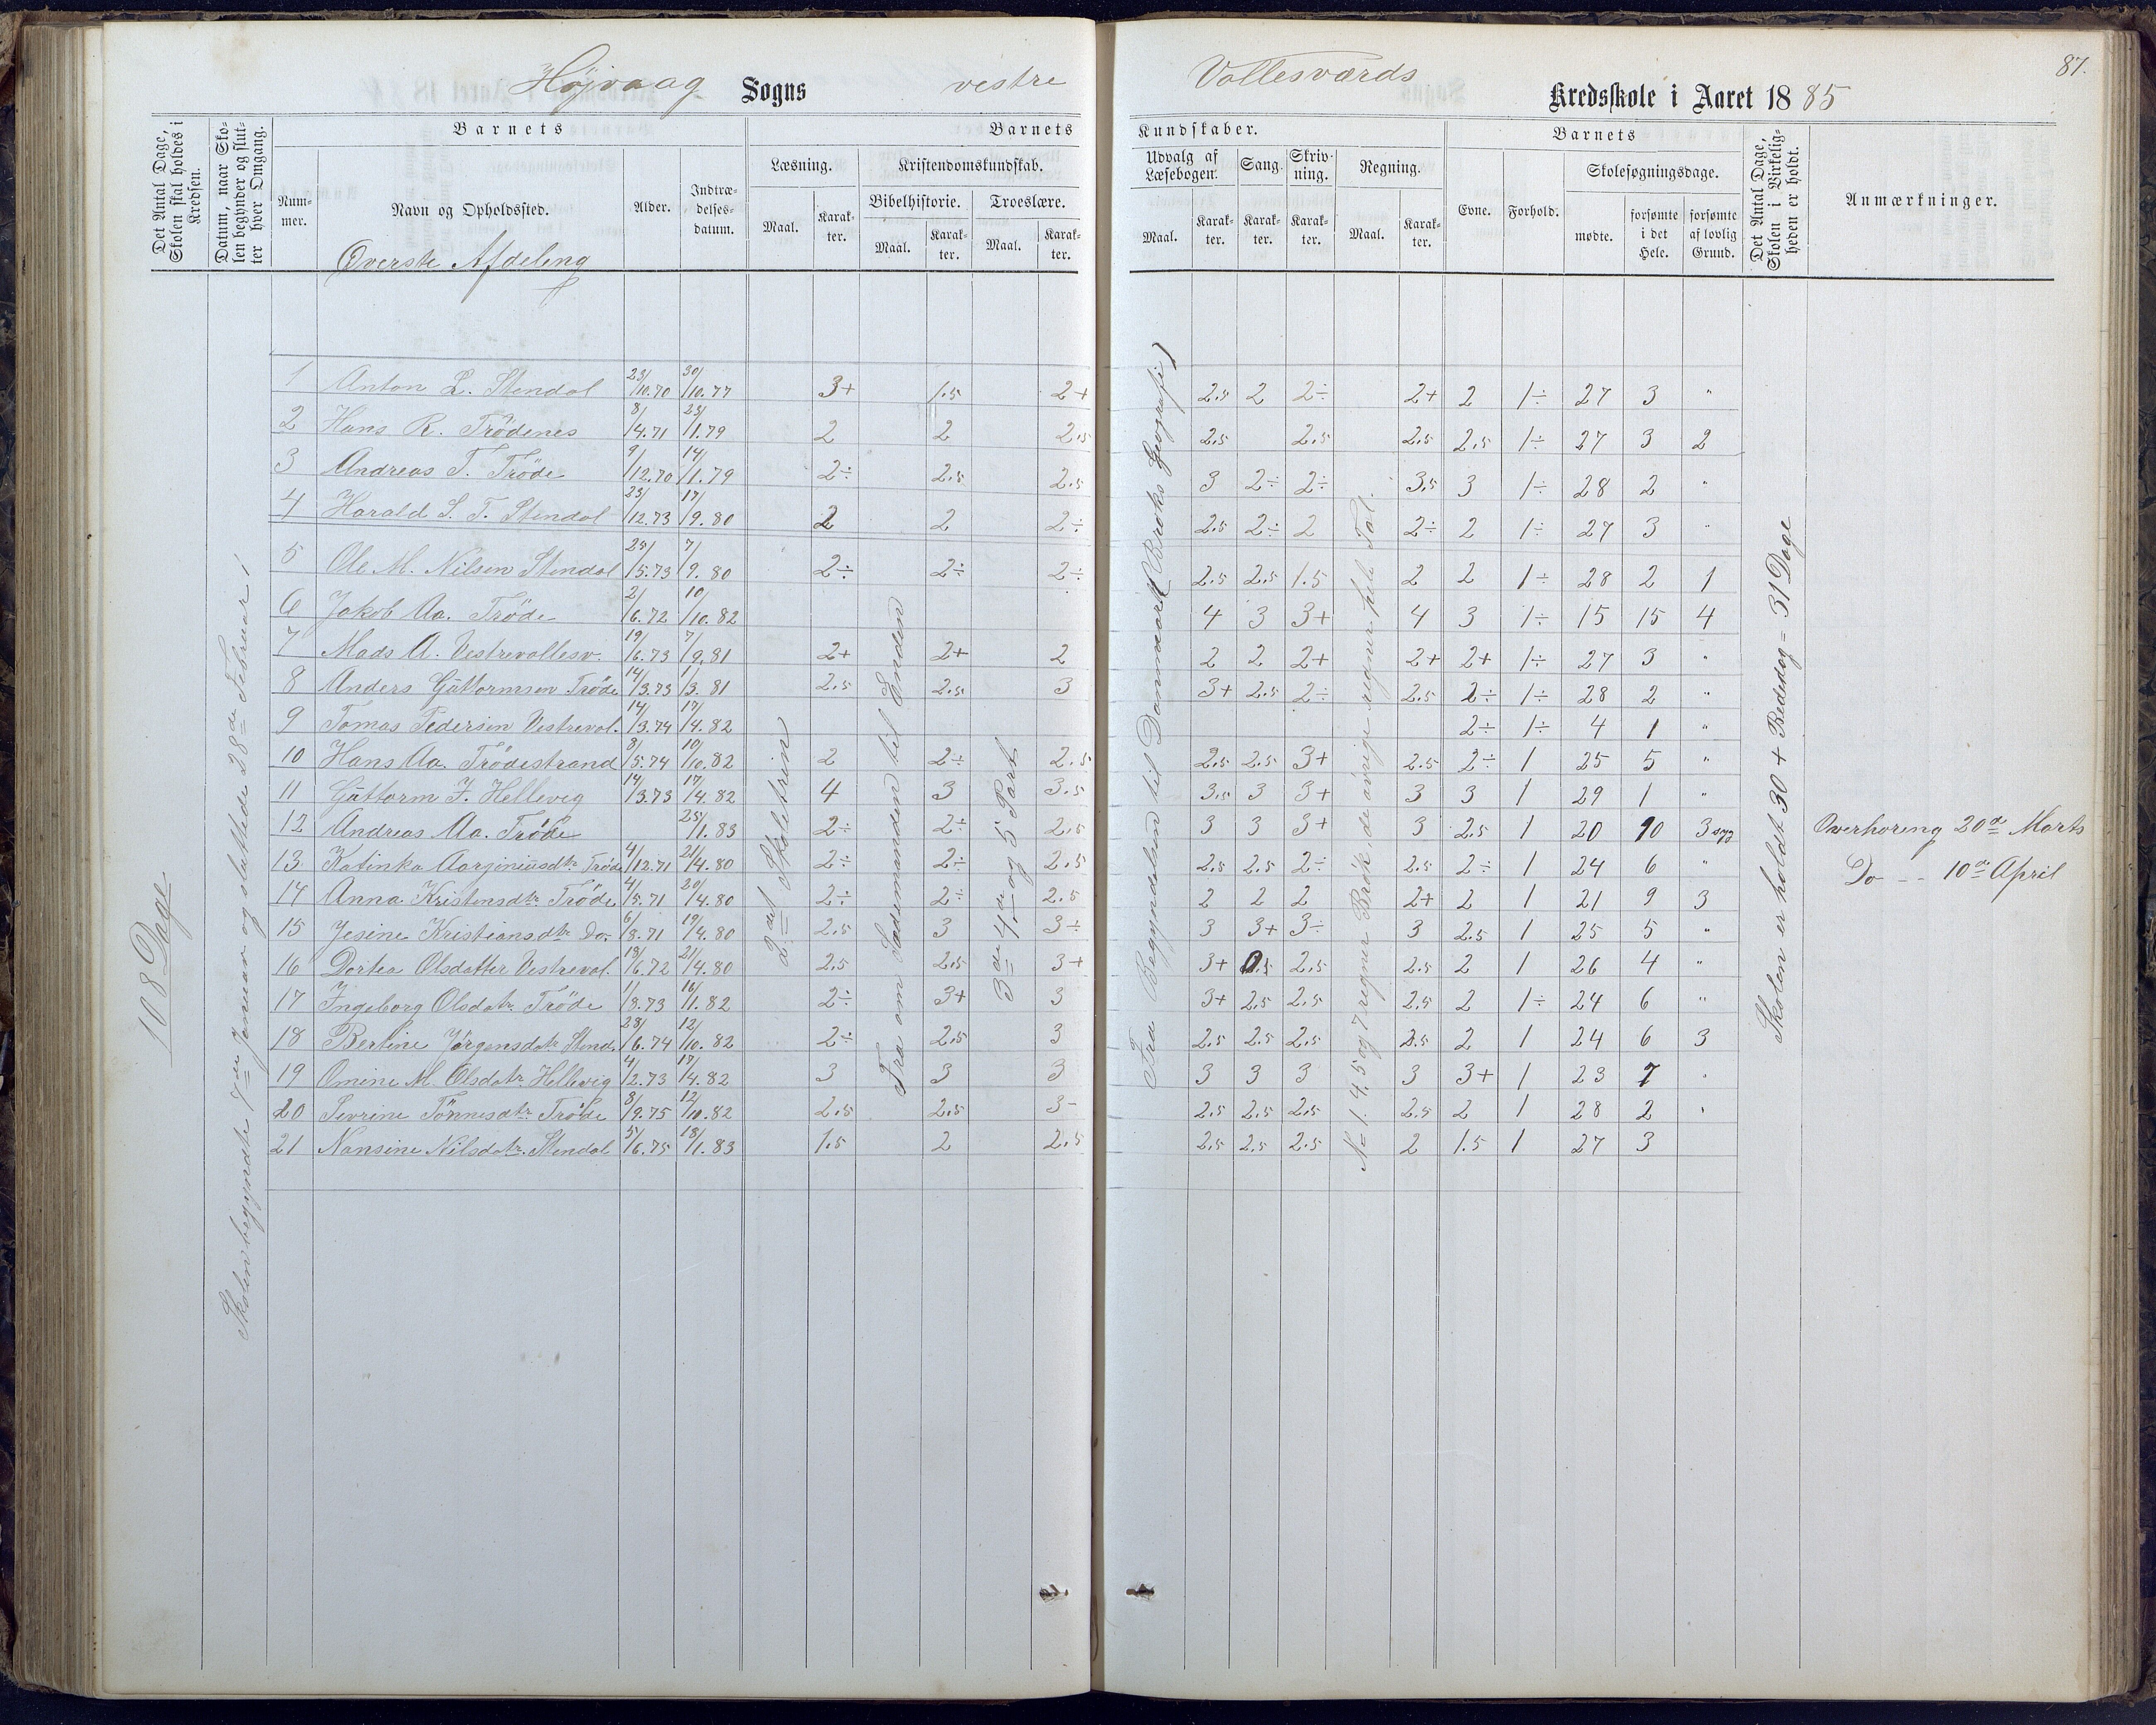 87.
Højvaag Sogns vestre Vallesværds Kredsskole i Aaret 1885
Det Antal Dage, Skolen skal holdes i Kredsen.
Datum, naar Skolen begynder og slutter hver Omgang.
Barnets
Nummer.
Navn og Opholdssted.
Alder.
Indtrædelsesdatum.
Barnets Kundskaber.
Læsning.
Maal. Karakter.
Kristendomskundskab.
Bibelhistorie. Troeslære.
Maal. Karakter. Maal. Karakter.
Udvalg af Læsebogen.
Maal. Karakter.
Sang. Karakter.
Skrivning. Karakter.
Regning.
Maal. Karakter.
Barnets
Evne. Forhold.
Skolesøgningsdage.
mødte. forsømte i det Hele. forsømte af lovlig Grund.
Det Antal Dage, Skolen i Virkeligheden er holdt.
Anmærkninger.
Øverste Afdeling
108 Dage
Skolen begyndte 7de Januar og sluttede 28de Februar
2det Skoletrin
Fra om Sædemanden til Enden
3de 4de og 5 Part
Fra Begyndelsen til Danmark (Broks Geografi)
No 1. 4. 5 og 7 regner Brøk, de øvrige regner hele Tal.
Skolen er holdt 30 + Bededag = 31 Dage
1 Anton L. Stendal 23/10.70 30/10.77 3+ 1.5 2+ 2.5 2 2÷ 2+ 2 1÷ 27 3 "
2 Hans R. Trödenes 8/4.71 23/1.79 2 2 2.5 2.5 2.5 2.5 2.5 1÷ 27 3 2
3 Andreas T. Tröde 9/12.70 14/1.79 2÷ 2.5 2.5 3 2÷ 2÷ 3.5 3 1÷ 28 2 "
4 Harald S. T. Stendal 23/12.73 17/9.80 2 2 2÷ 2.5 2÷ 2 2÷ 2 1÷ 27 3 "
5 Ole M. Nilsen Stendal 25/5.73 7/9.80 2÷ 2÷ 2÷ 2.5 2.5 1.5 2 2 1÷ 28 2 1
6 Jakob Aa. Tröde 2/6.72 10/10.82 4 3 3+ 4 3 1÷ 15 15 4
7 Mads A. Vestrevallesv. 19/6.73 7/9.81 2+ 2+ 2 2 2 2+ 2+ 2+ 1÷ 27 3 "
8 Anders Guttormsen Tröde 14/3.73 1/3.81 2.5 2.5 3 3+ 2.5 2÷ 2.5 2÷ 1÷ 28 2 "
9 Tomas Pedersen Vestreval. 14/3.74 17/4.82 2÷ 1÷ 4 1 "
10 Hans Aa. Trödestrand 8/5.74 10/10.82 2 2÷ 2.5 2.5 2.5 3+ 2.5 2÷ 1 25 5 "
11 Guttorm J. Hellevig 14/3.73 17/4.82 4 3 3.5 3.5 3 3+ 3 3 1 29 1 "
12 Andreas Aa. Tröde 25/1.83 2÷ 2÷ 2.5 3 3 3+ 3 2.5 1 20 10 3 syg Overhøring 20de Marts
13 Katinka Aorginiusdtr. Tröde 4/12.71 21/4.80 2÷ 2÷ 2.5 2.5 2.5 2÷ 2.5 2÷ 1 24 6 " Do — 10de April
14 Anna Kristensdtr. Tröde 4/5.71 20/4.80 2÷ 2÷ 2.5 2 2 2 2+ 2 1 21 9 3
15 Jesine Kristiansdtr. Do. 6/8.71 19/4.80 2.5 3 3÷ 3 3+ 3÷ 3 2.5 1 25 5 "
16 Dortea Olsdatter Vestreval. 18/6.72 21/4.80 2.5 2.5 3+ 3+ 2.5 2.5 2 1 26 4 "
17 Ingeborg Olsdatr. Tröde 1/8.73 16/11.82 2÷ 3+ 3 3+ 2.5 2.5 2.5 2 1÷ 24 6 "
18 Bertine Jörgensdatr. Stend. 28/6.74 12/10.82 2÷ 2.5 3 2.5 2.5 2.5 2.5 2 1 24 6 3
19 Omine M. Olsdatr. Hellevig 4/2.73 17/4.82 3 3 3 3 3 3 3 3+ 1 23 7 "
20 Severine Tönnesdtr. Tröde 8/9.75 12/10.82 2.5 2.5 3- 2.5 2.5 2.5 2.5 2 1 28 2 "
21 Nansine Nilsdatr. Stendal 5/6.75 18/1.83 1.5 2 2.5 2.5 2.5 2.5 2 1.5 1 27 3